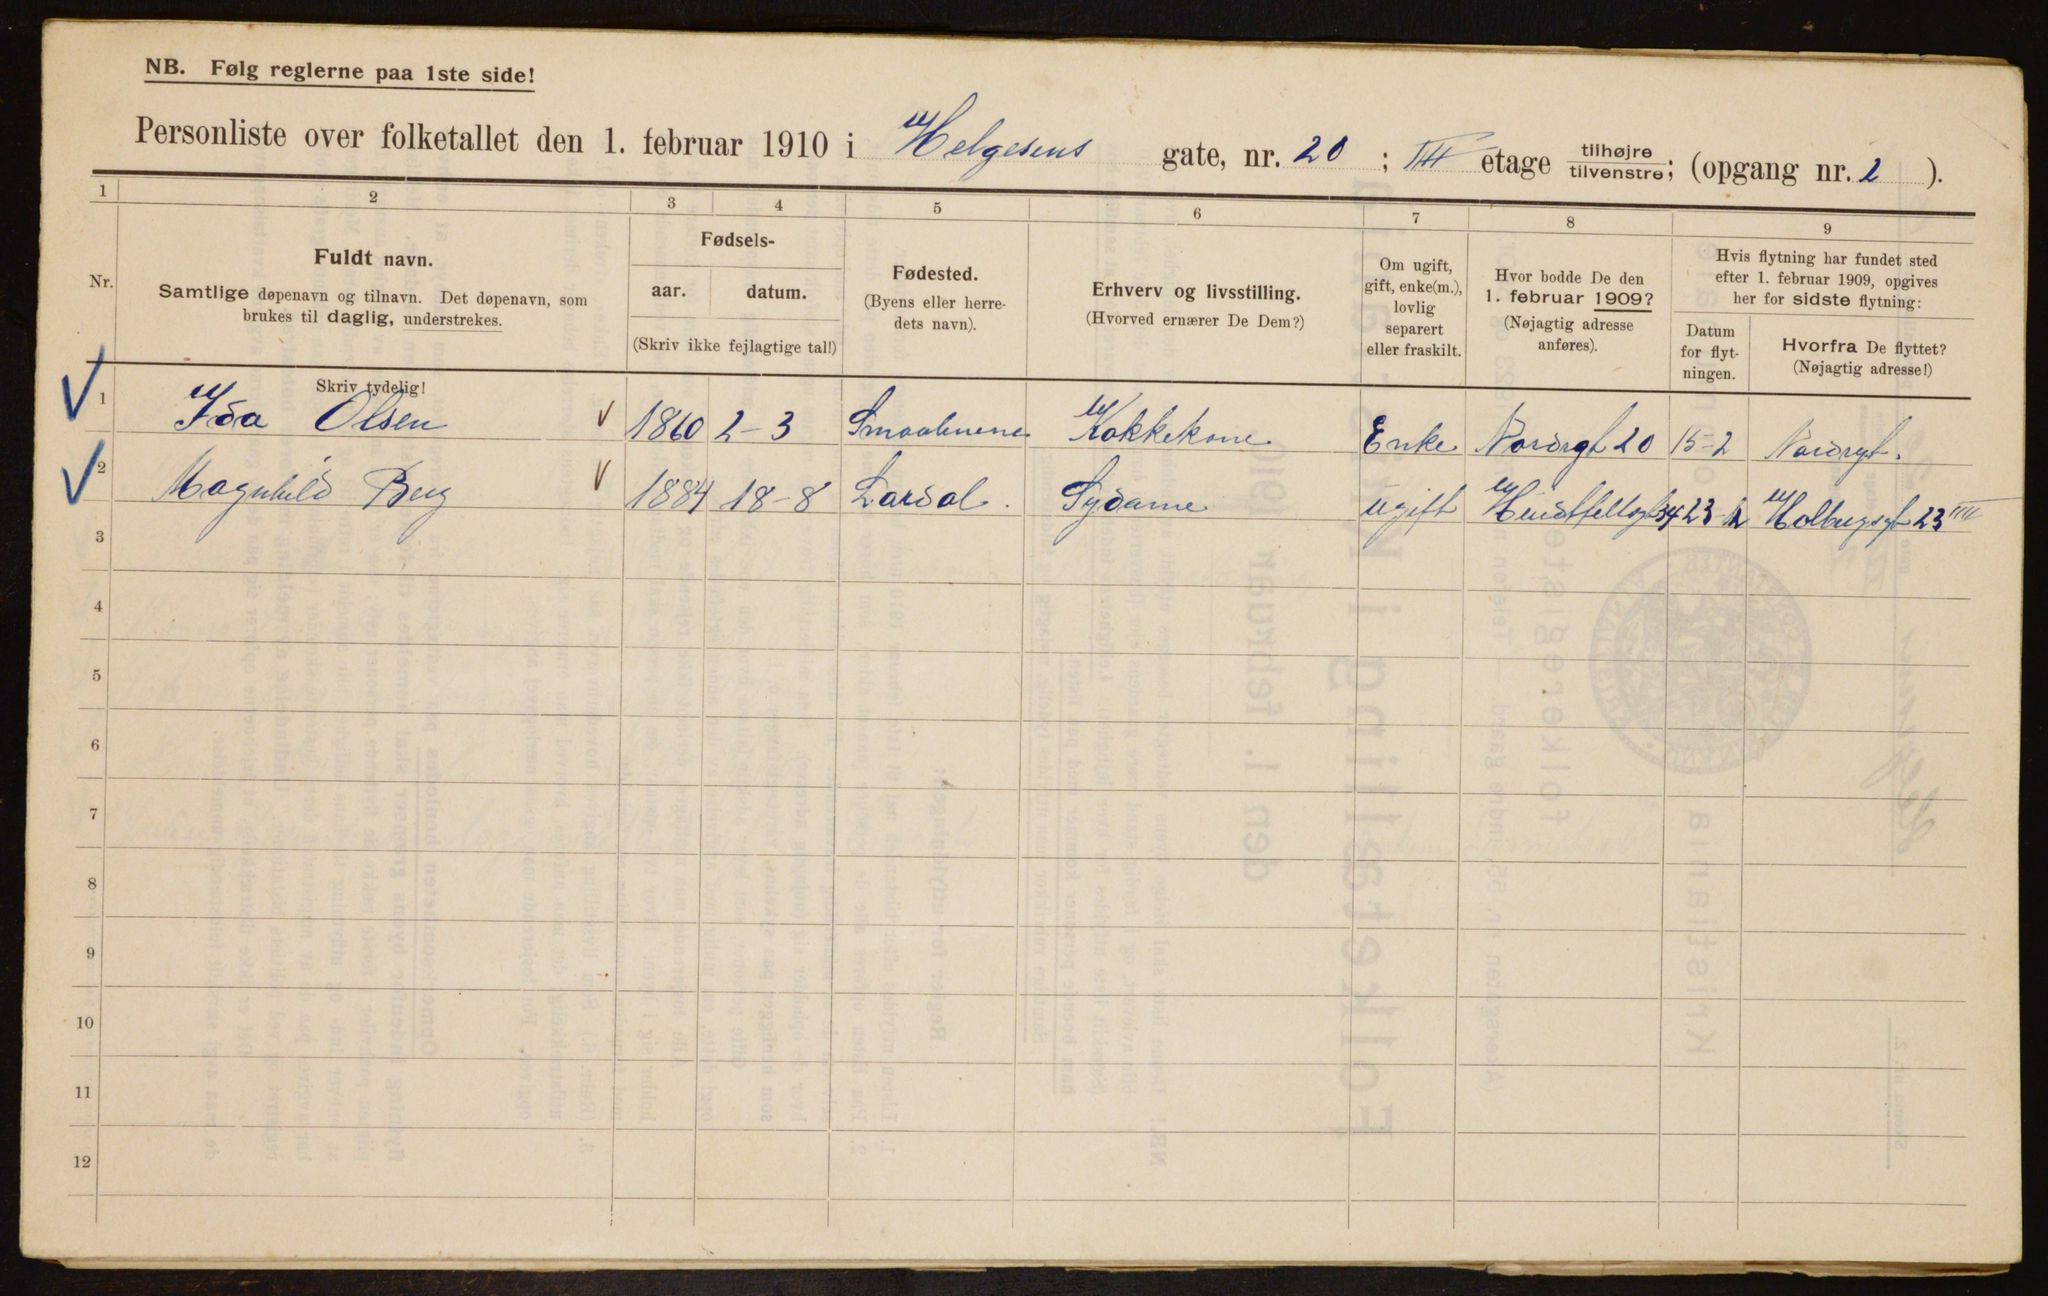 NB. Følg reglerne paa 1ste side!
Personliste over folketallet den 1. februar 1910 i Helgesens gate, nr. 20 ; III etage tilhøjre tilvenstre; (opgang nr. 2 ).
1 2 3 4 5 6 7 8 9
Nr.
Fuldt navn.
Samtlige døpenavn og tilnavn. Det døpenavn, som
brukes til daglig, understrekes.
Skriv tydelig!
Fødsels-
aar. datum.
(Skriv ikke fejlagtige tal!)
Fødested.
(Byens eller herre-
dets navn).
Erhverv og livsstilling.
(Hvorved ernærer De Dem?)
Om ugift,
gift, enke(m.),
lovlig
separert
eller fraskilt.
Hvor bodde De den
1. februar 1909?
(Nøjagtig adresse
anføres).
Hvis flytning har fundet sted
efter 1. februar 1909, opgives
her for sidste flytning:
Datum
for flyt-
ningen.
Hvorfra De flyttet?
(Nøjagtig adresse!)
1 Ida Olsen 1860 2-3 Smaalenene Kokkekone Enke Nordrgt 20 15-2 Nordrgt.
2 Magnhild Berg 1884 18-8 Lardal. Sydame ugift 34 23-12 Holbergsgt 23 IIII
3
4
5
6
7
8
9
10
11
12